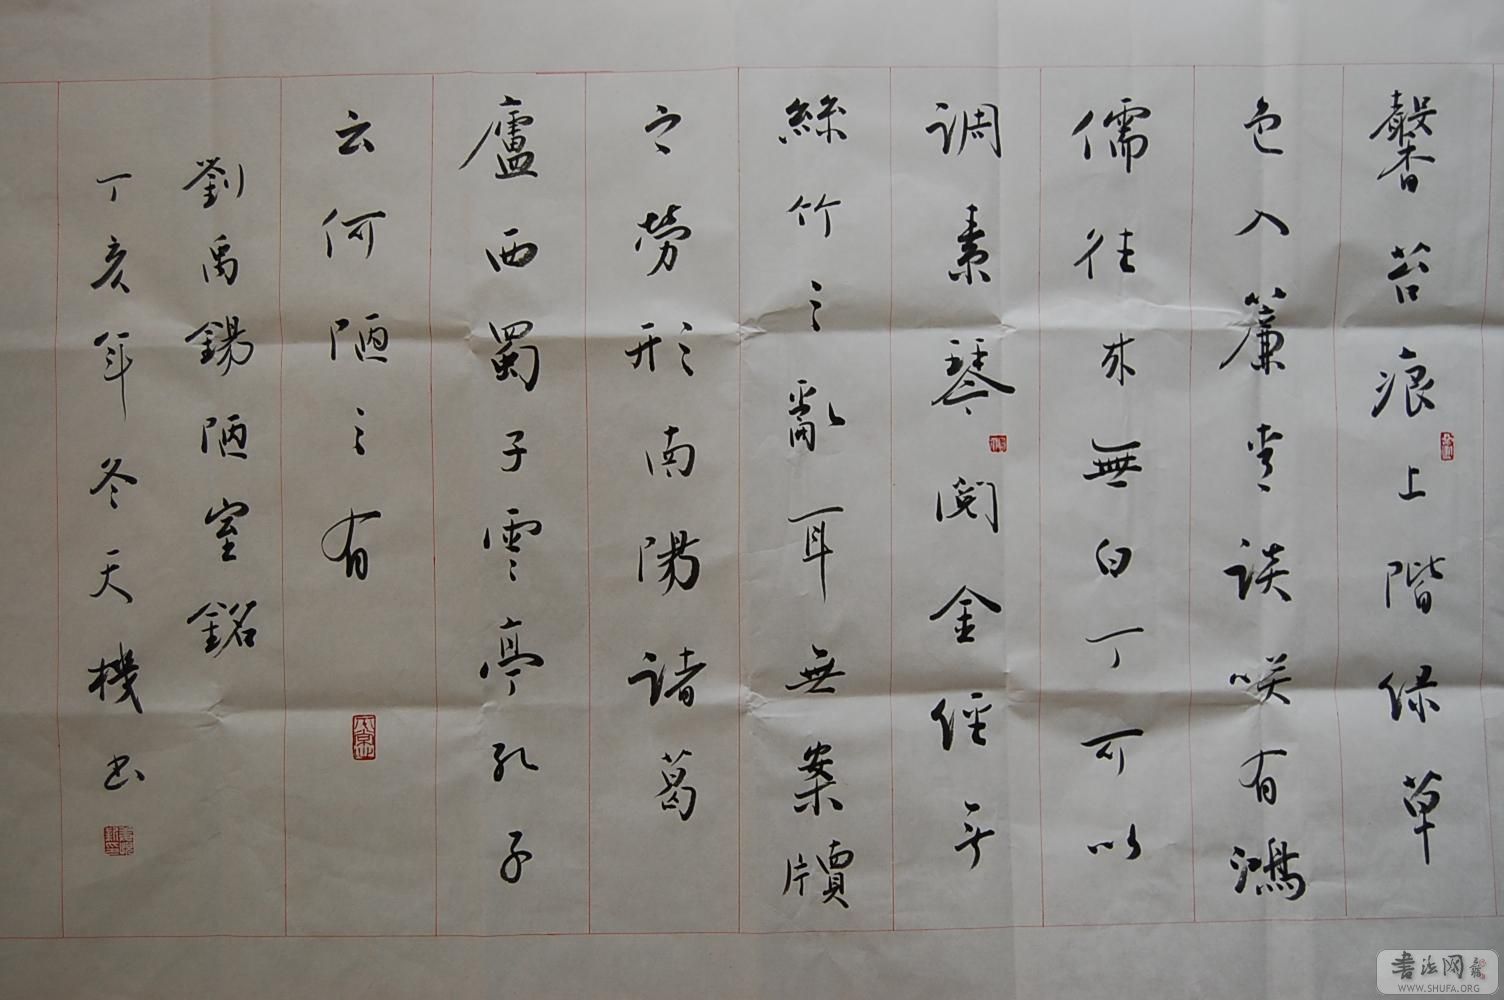 馨苔痕上階緑草
色入簾青談咲有鴻
儒往来無白丁可以
调素琴阅金经無
絲竹之亂耳無案牘
之勞形南陽諸葛
廬西蜀子雲亭孔子
云何陋之有
劉禹錫陋室銘
丁亥年冬天機书
書法网
WWW.SHUFA.ORG